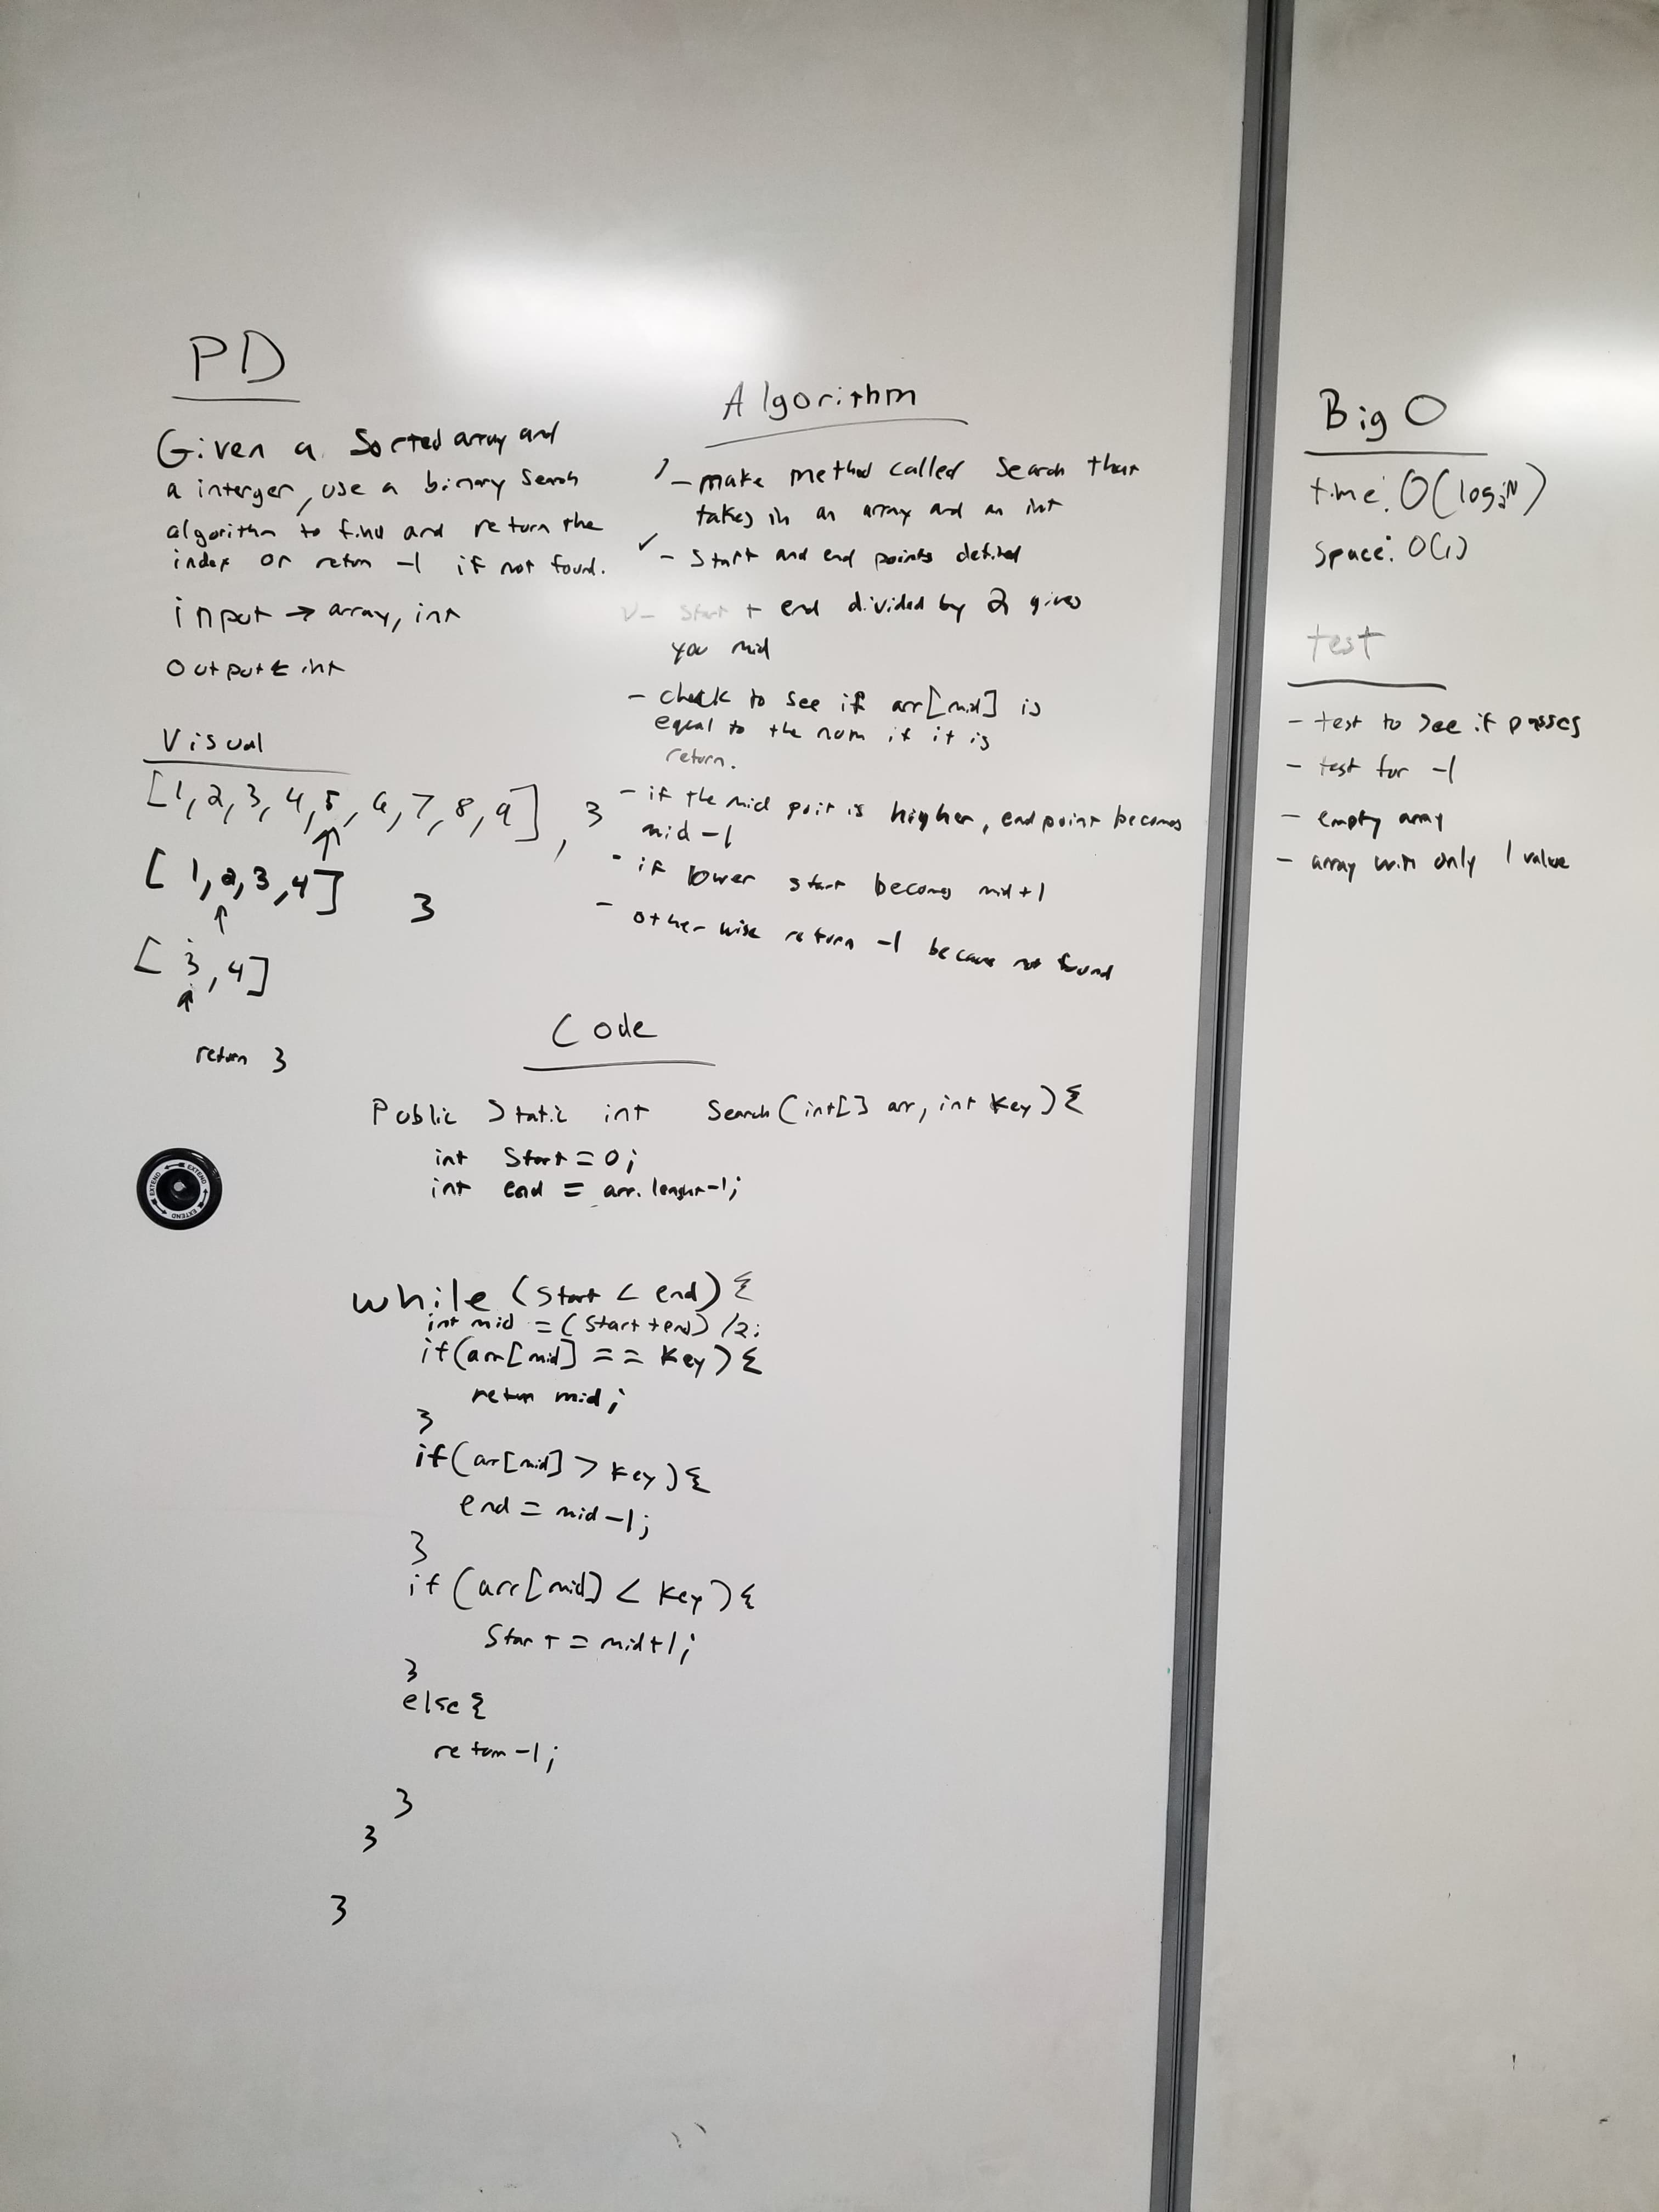 PD
Given a Sorted array and
a interger, use a binary search
algorithm to find and return the
index or return -1 if not found.
input → array, int
output ← int
Visual
[1, 2, 3, 4, 5, 6, 7, 8, 9], 3
[1, 2, 3, 4] 3
[3, 4]
return 3
Algorithm
- make method called Search that
takes in an array and an int
✓ - Start and end points defined
✓ - Start + end divided by 2 gives
you mid
- check to see if arr[mid] is
equal to the num if it is
return.
- if the mid poit is higher, end point becomes
mid -1
- if lower start becomes mid+1
- otherwise return -1 because not found
Code
Public Static int Search(int[] arr, int Key){
int Start = 0;
int end = arr.lenght-1;
while (Start < end) {
int mid = (Start + end) /2;
if(arr[mid] == Key){
return mid;
}
if(arr[mid] > Key){
end = mid -1;
}
if (arr[mid] < Key){
Start = mid+1;
}
else{
return -1;
}
}
}
EXTEND EXTEND EXTEND
Big O
time: O(log₂N)
Space: O(1)
test
- test to see if passes
- test for -1
- empty array
- array with only 1 value